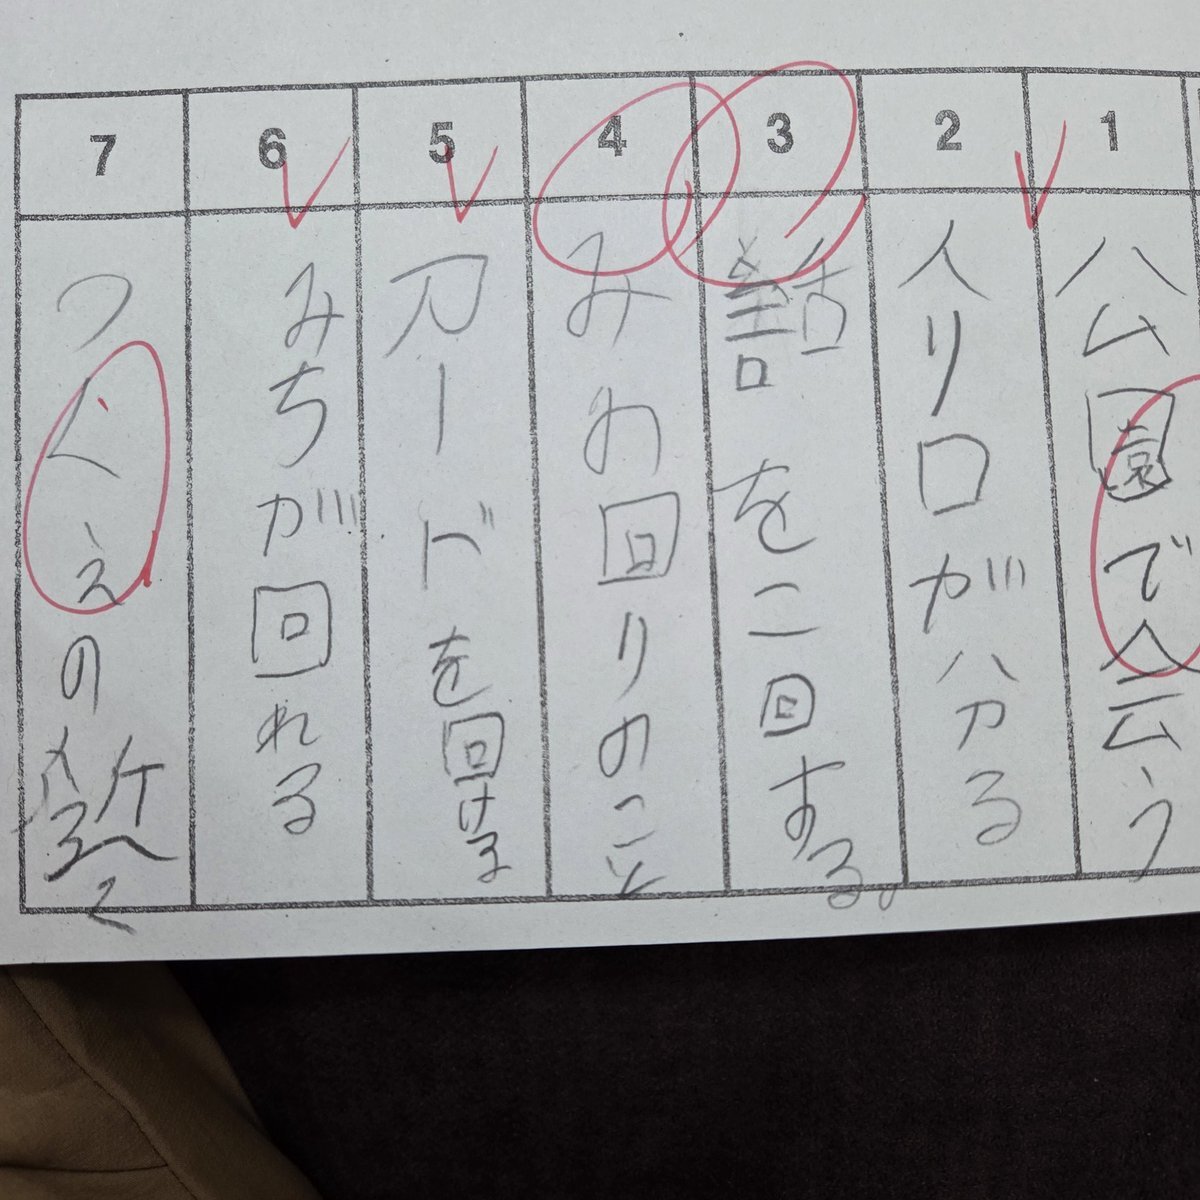 1
公園で会う
2
入り口が分る
3
話を二回する。
4
みの回りのこと
5
カードを回ける
6
みちが回れる
7
つくえの